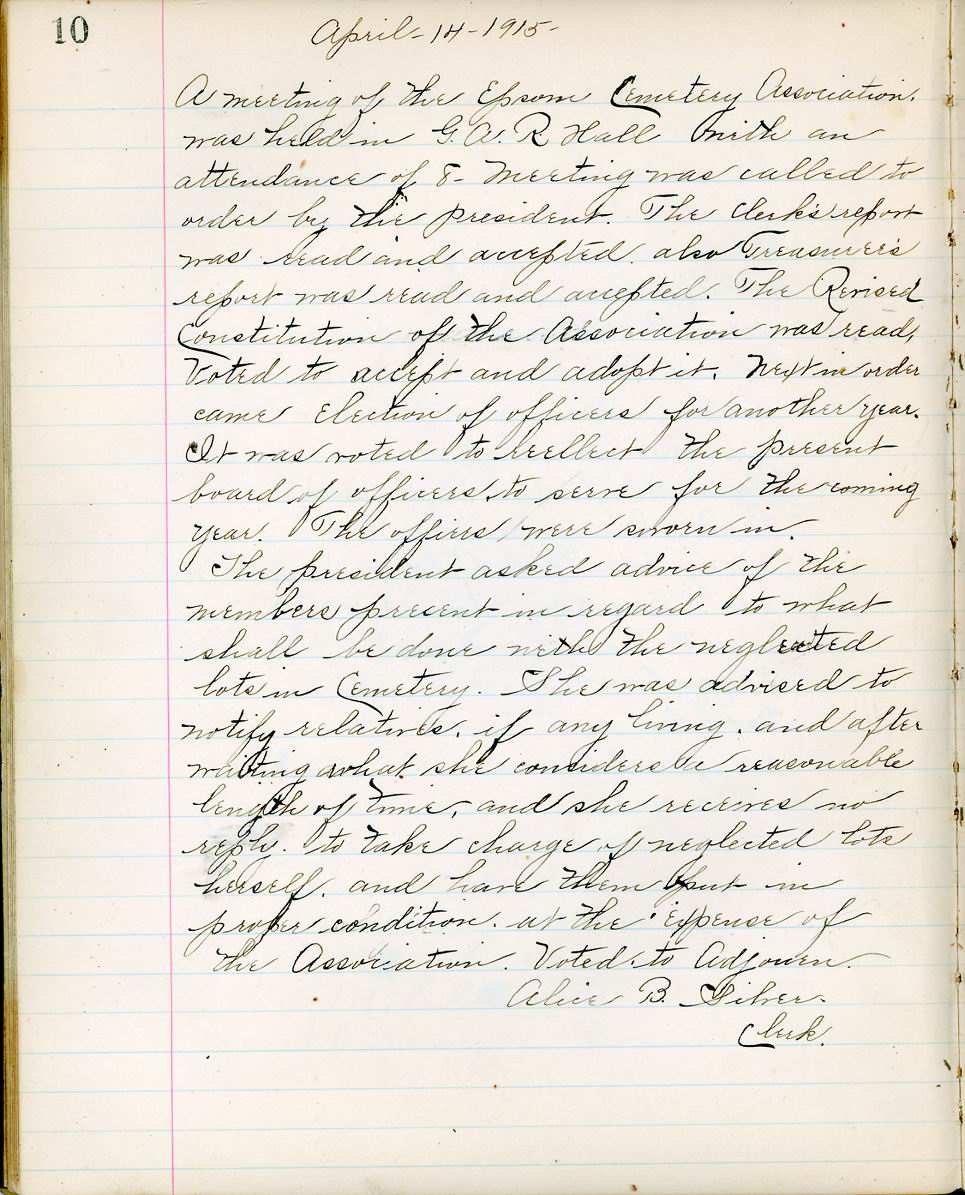 10
April - 14 - 1915 -
A meeting of the Epsom Cemetery Association.
was held in G. A. R Hall with an
attendance of 8 - Meeting was called to
order by the president. The clerk's report
was read and accepted. also Treasurer's
report was read and accepted. The Revised
Constitution of the Association was read,
Voted to accept and adopt it. Next in order
came Election of officers for another year.
It was voted to reellect the present
board of officers, to serve for the coming
year. The offiers were sworn in.
The president asked advice of the
members present in regard to what
shall be done with the neglected
lots in Cemetery. She was advised to
notify relatives. if any living. and after
waiting what she considers a reasonable
length of time, and she receives no
reply. to take charge of neglected lots
herself. and have them put in
proper condition. at the Expense of
the Association. Voted to Adjourn.
Alice B. Silver.
Clerk.